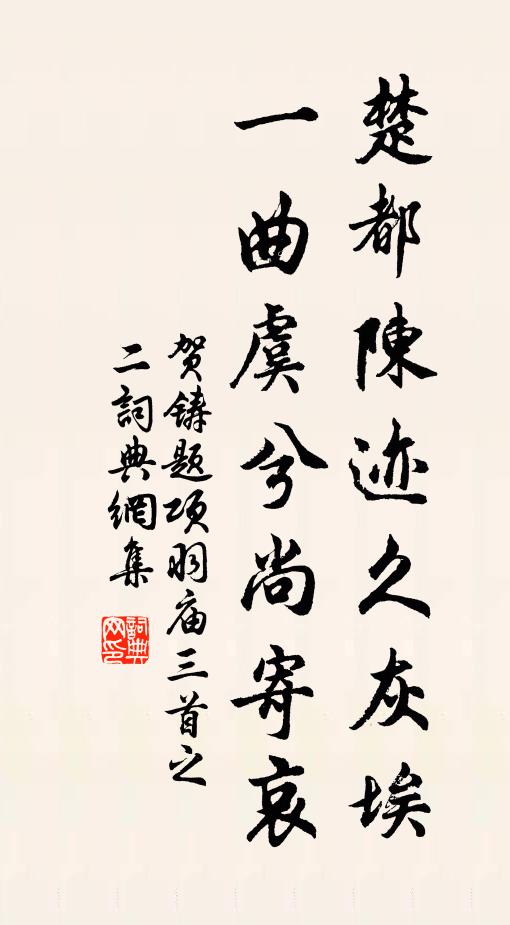 楚都陳迹久灰埃
一曲虞兮尚寄哀
贺鋳题项羽庙三首之
二詞典網集
詞典
网印